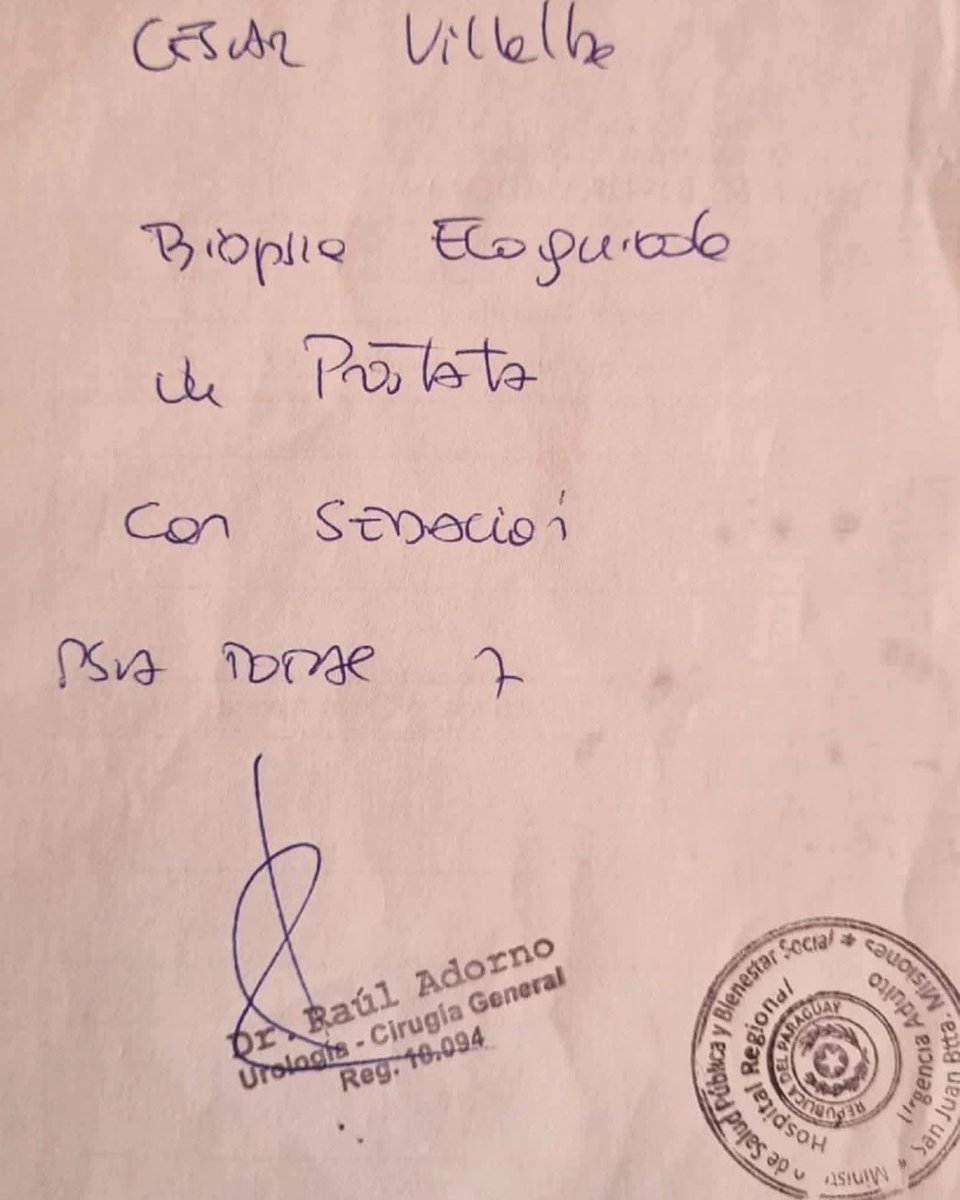 CESAR Villalba
Biopsia Ecoguiada
de Próstata
Con SEDACIÓN
PSA TOTAL 7
Dr. Raúl Adorno
Urología - Cirugía General
Reg. 10.094
Ministerio de Salud Pública y Bienestar Social * San Juan Btta. Misiones *
Hospital Regional
Urgencia Adulto
REPUBLICA DEL PARAGUAY